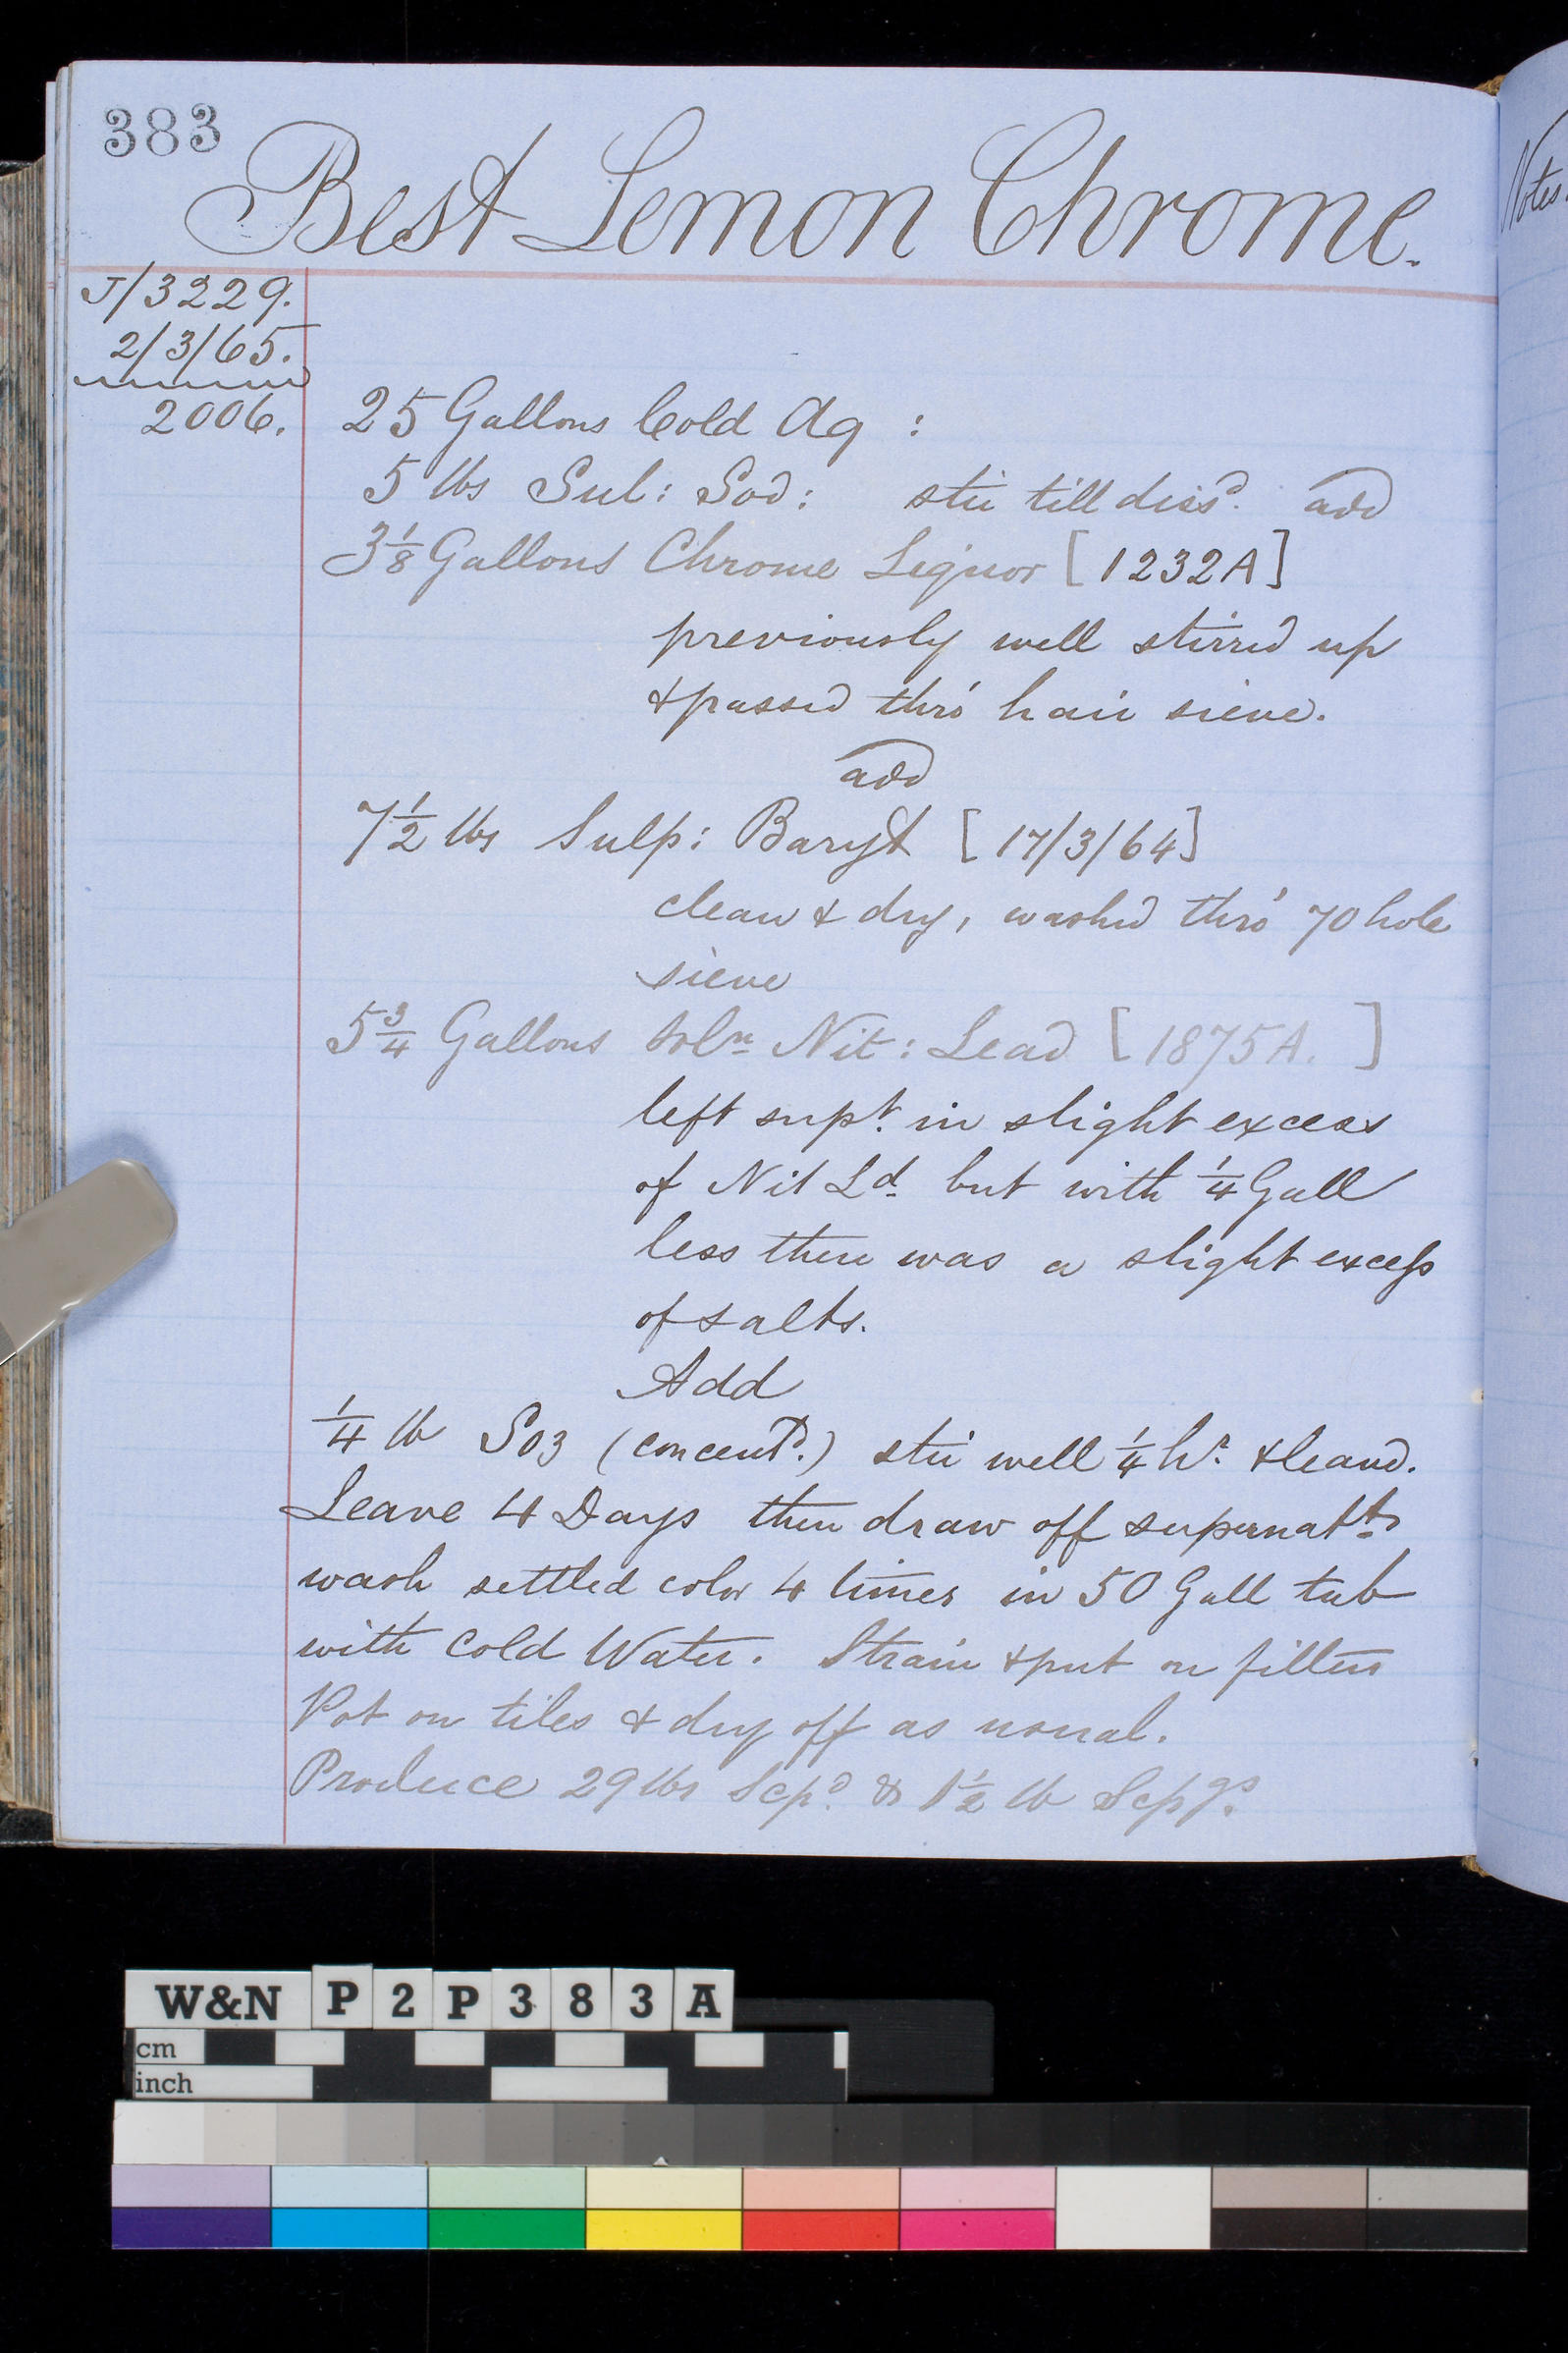 383
Best Lemon Chrome.
J/3229.
2/3/65.
2006.
25 Gallons Cold Aq :
5 lbs Sul: Sod: stir till dissd. add
3 1/8 Gallons Chrome Liquor [1232A]
previously well stirred up
& passed thro' hair sieve.
add
7 1/2 lbs Sulp: Baryt [17/3/64]
clean & dry, washed thro' 70 hole
sieve
5 3/4 Gallons Soln Nit: Lead [1875A. ]
left supt. in slight excess
of Nit Ld. but with 1/4 Gall
less there was a slight excess
of salts.
Add
1/4 lb SO3 (concentd.) stir well 1/4 hr. & leave.
Leave 4 Days then draw off supernatt
wash settled color 4 times in 50 Gall tub
with Cold Water. Strain & put on filters
Pot on tiles & dry off as usual.
Produce 29 lbs Scpd. & 1 1/2 lb Scpgs.
Notes.
W&N P2P383A
cm
inch